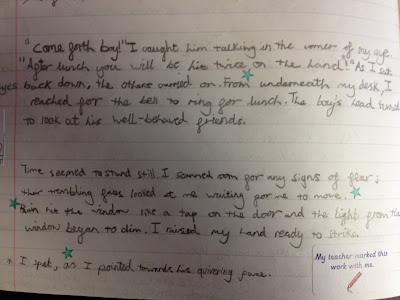 "Come forth boy!" I caught him talking in the corner of my eye.
"After lunch you will be hit twice on the hand!" As I sat
back down, the others carried on. From underneath my desk, I
reached for the bell to ring for lunch. The boy's head turned
to look at his well-behaved friends.
Time seemed to stand still. I scanned room for any signs of fear;
their trembling faces looked at me waiting for me to move.
Rain hit the window like a tap on the door and the light from the
window began to dim. I raised my hand ready to strike.
* I spat, as I pointed towards his quivering face.
My teacher marked this
work with me.